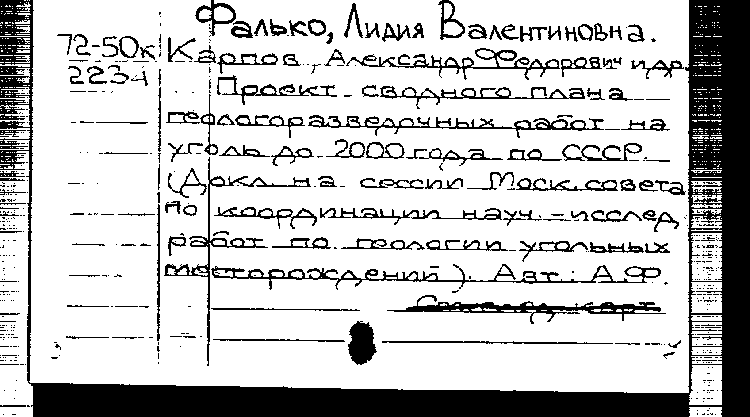 Фалько, Лидия Валентиновна.
72-50к Карпов, Александр Федорович и др.
2234
Проект сводного плана
геологоразведочных работ на
уголь до 2000 года по СССР.
(Докл. на сессии Моск. совета
по координации науч.-исслед.
работ по геологии угольных
месторождений). Авт.: А.Ф.